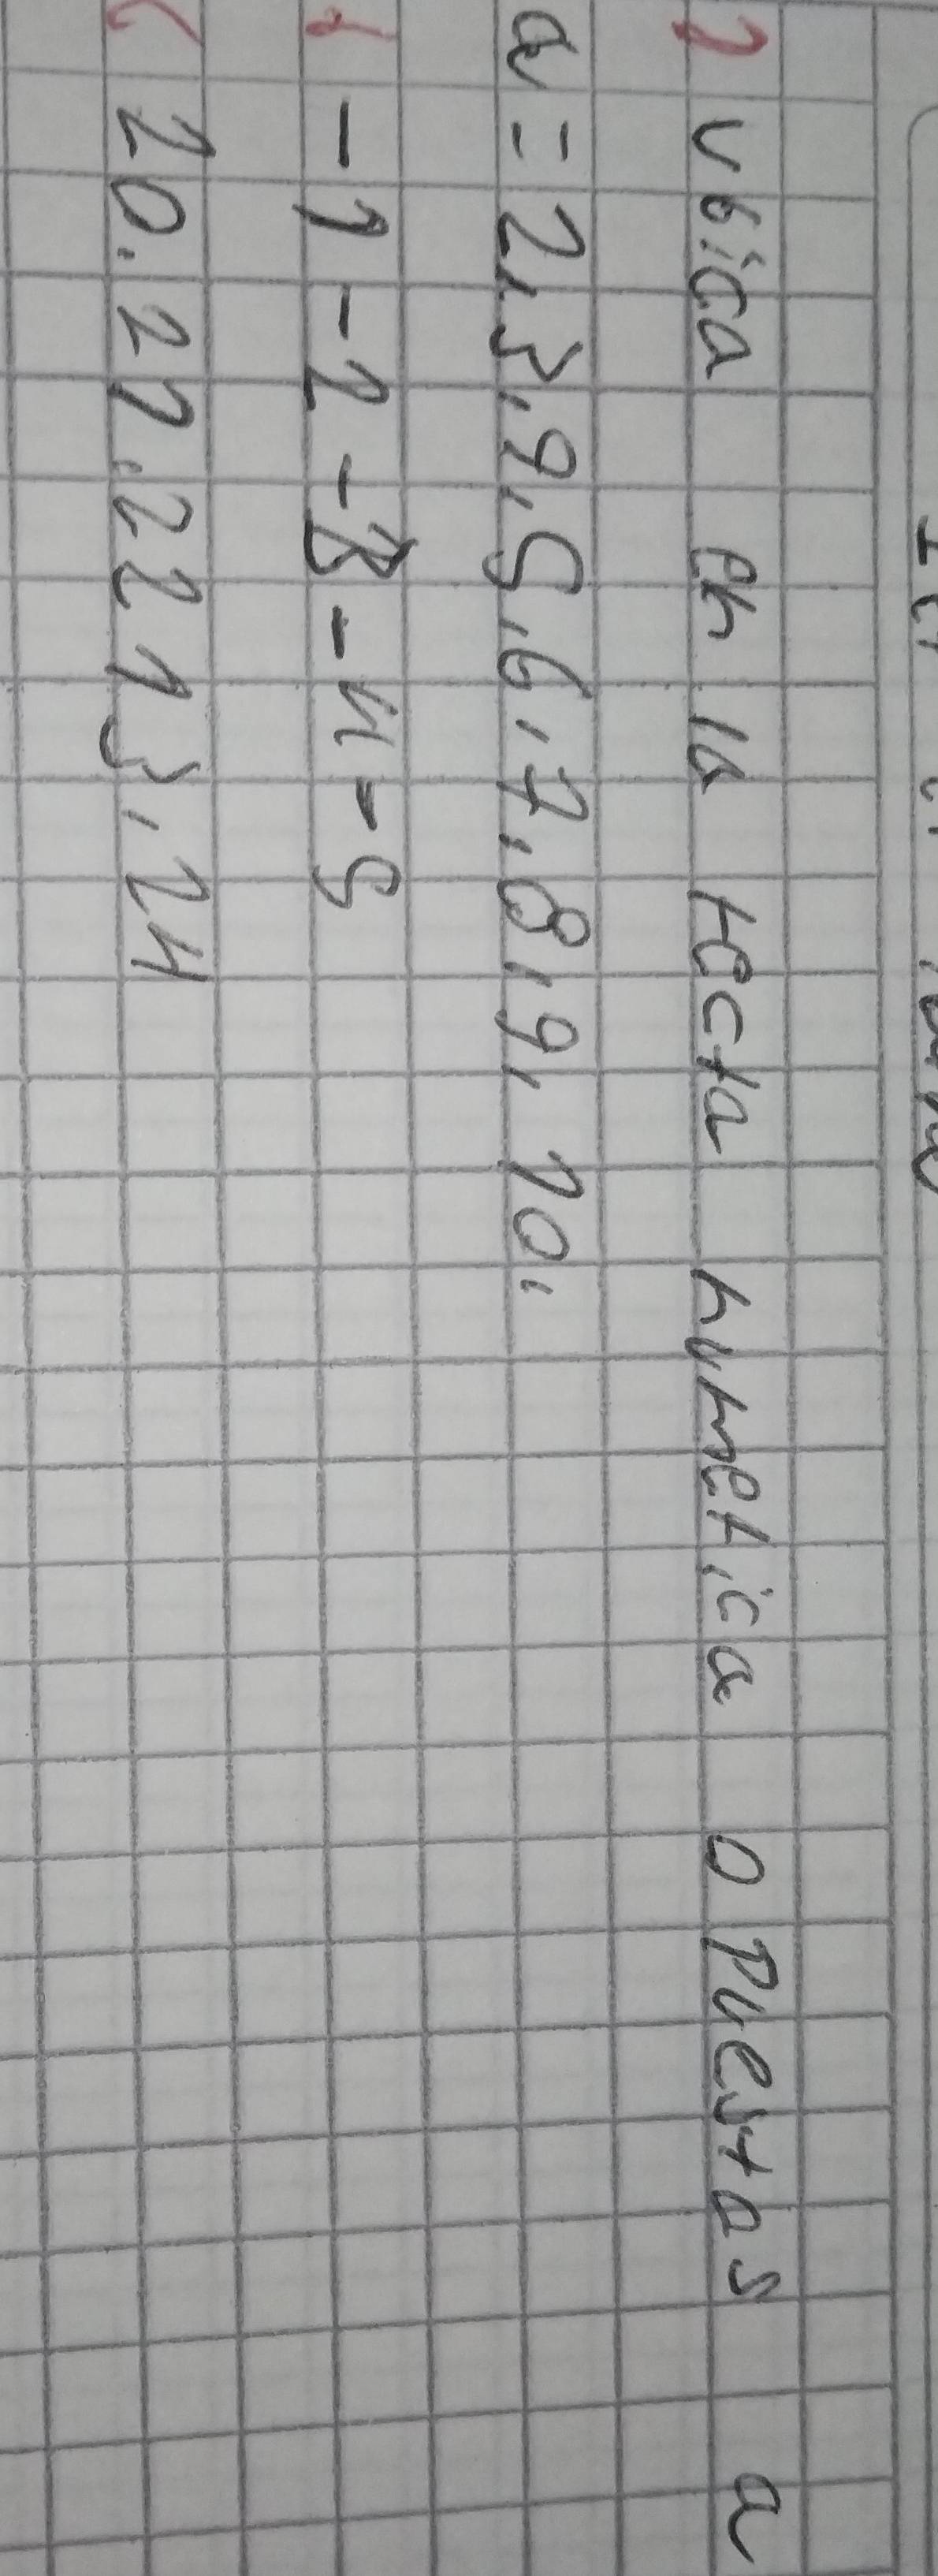 1 ubica en la recta numerica opuestas a
a = 2,3,4,5,6,7,8,9,10,
b -1 -2 -3 -4 -5
c 20.21.22 13,24